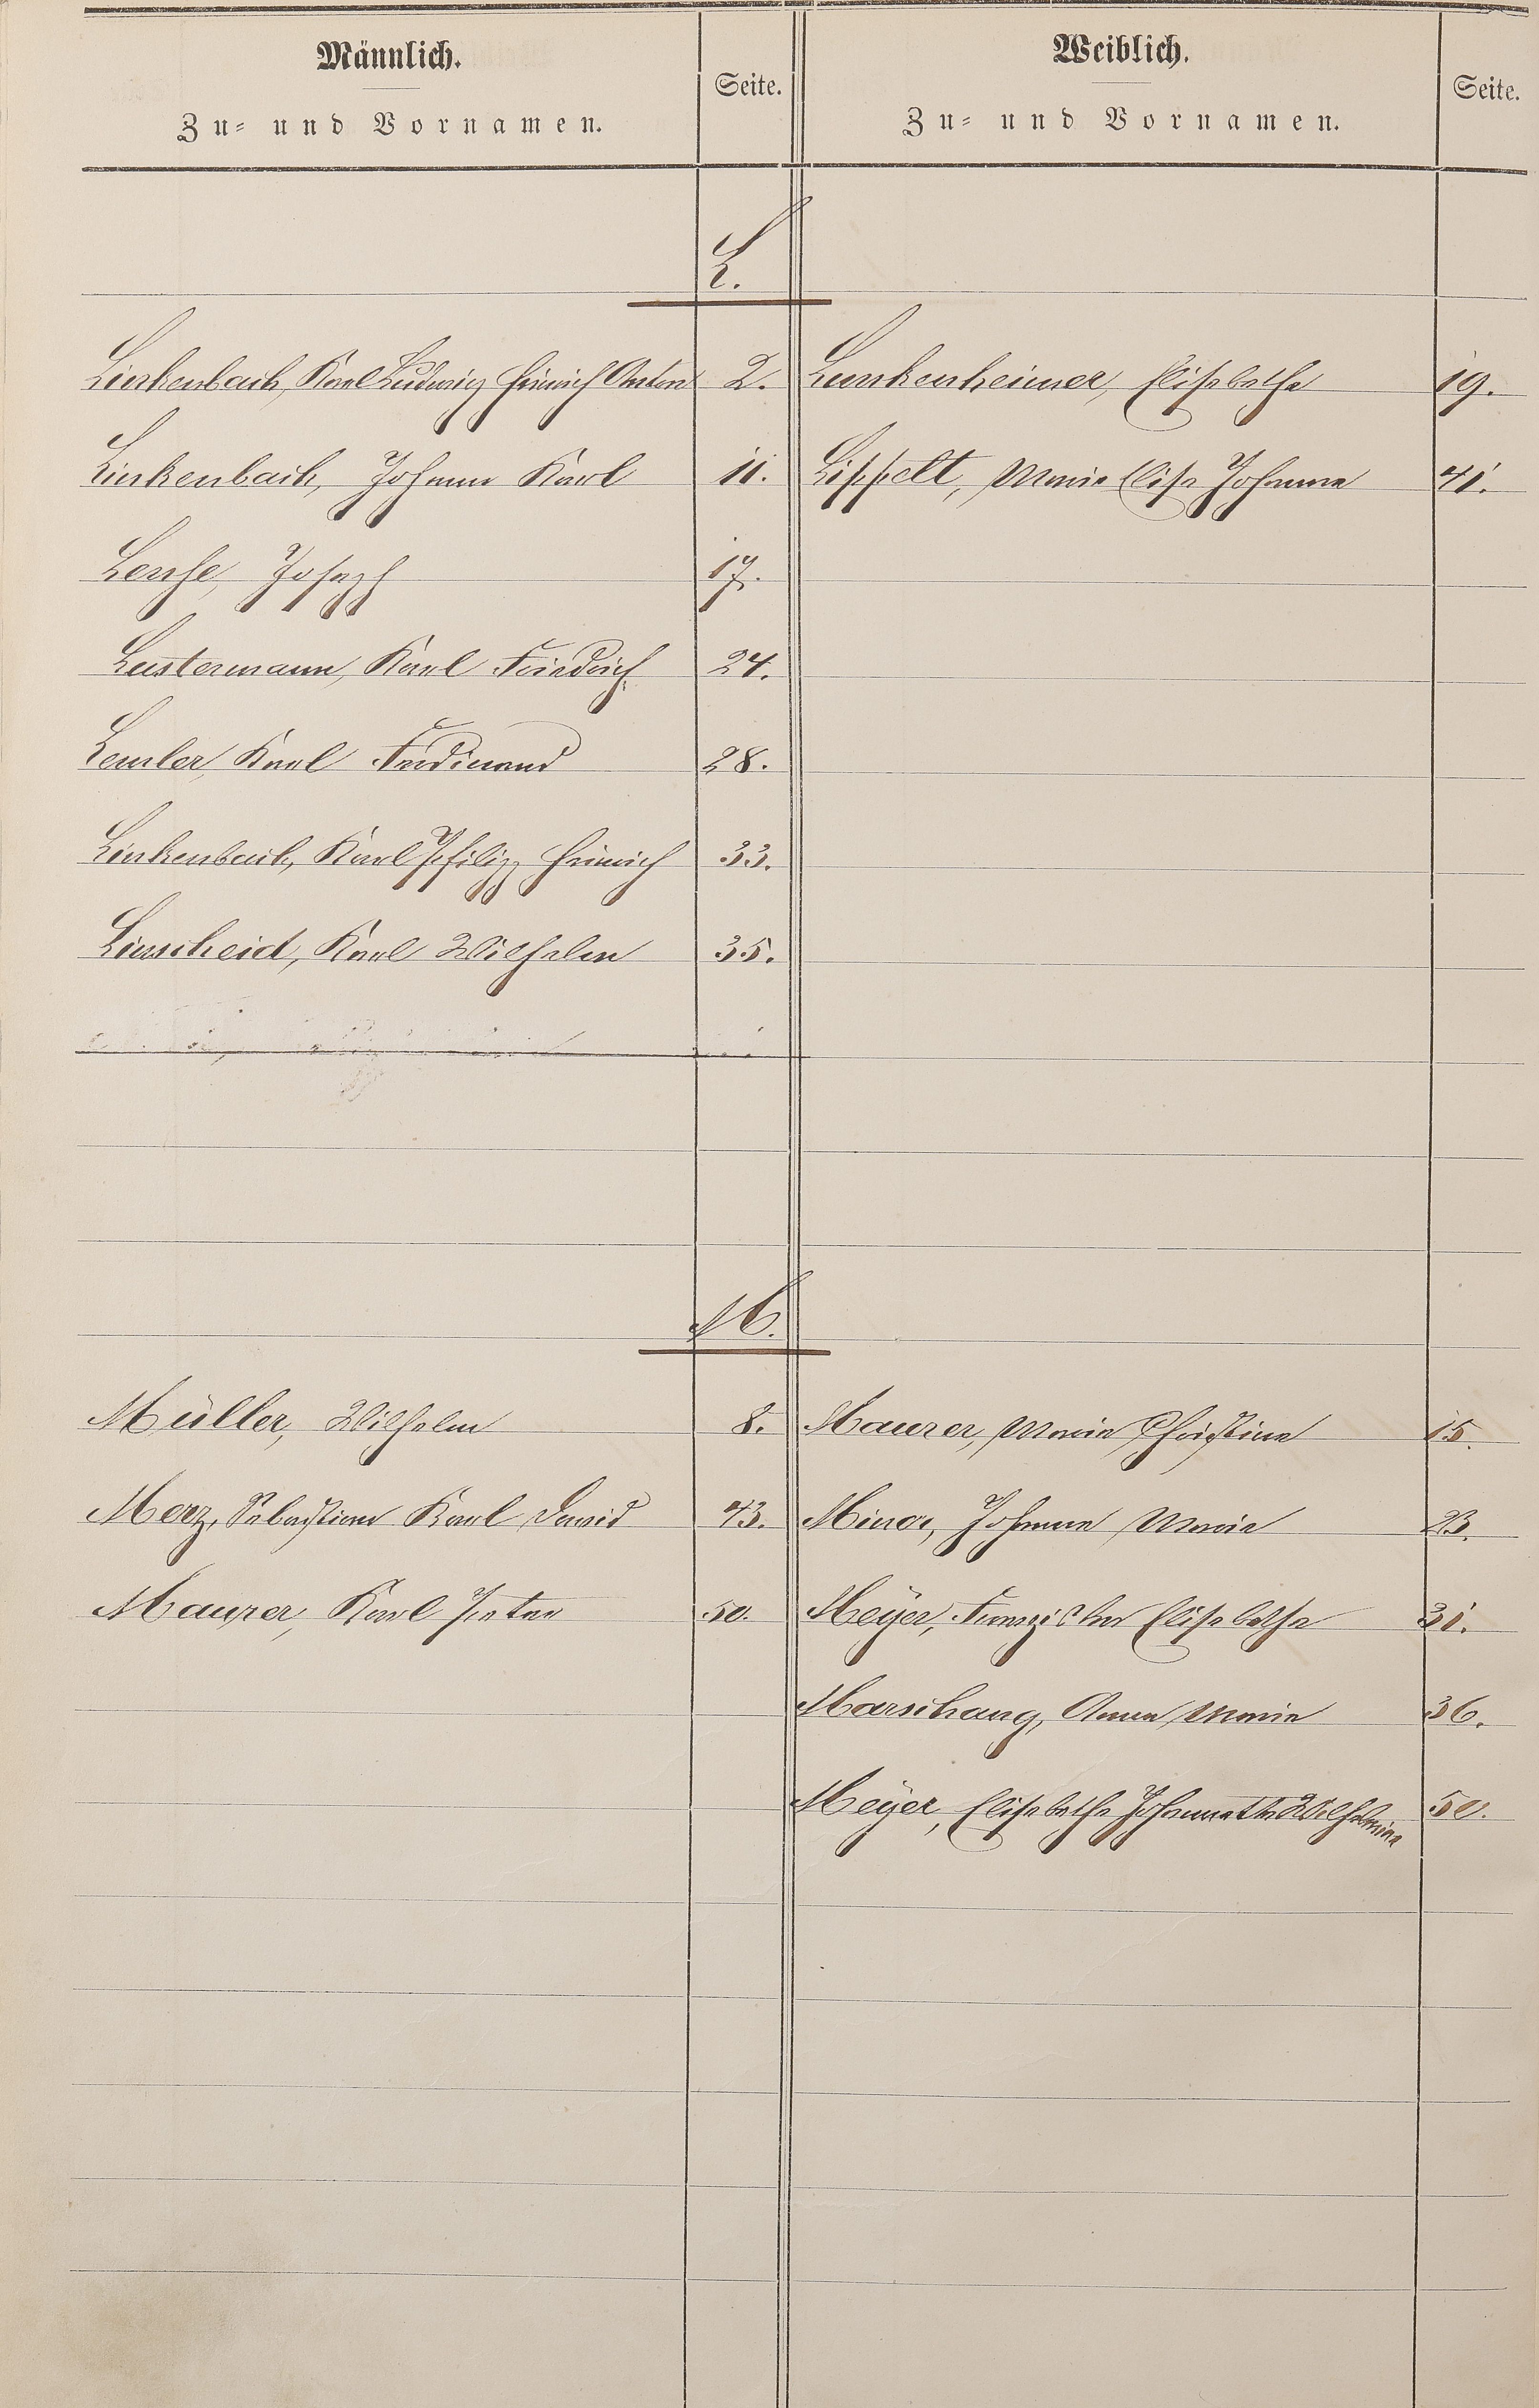 Männlich.
Zu- und Vornamen.
Seite.
Weiblich.
Zu- und Vornamen.
Seite.
L.
Linkenbach, Karl Ludwig Heinrich Anton 2. Lunkenheimer, Elisabethe 19.
Linkenbach, Johann Karl 11. Lippelt, Maria Elise Johanna 41.
Joseph 17.
Lustermann, Karl Friedrich 24.
Lemler, Karl Ferdinand 28.
Linkenbach, Karl Philipp Heinrich 33.
Linscheid, Karl Wilhelm 35.
M.
Müller, Wilhelm 8. Maurer, Maria Christine 15.
Merz, Sebastian Karl David 43. Minor, Johanna Maria 23.
Maurer, Karl Peter 50. Meÿer, Franziska Elisabetha 31.
Marschang, Anna Maria 36.
Meÿer, Elisabethe Johannette Wilhelmine 50.